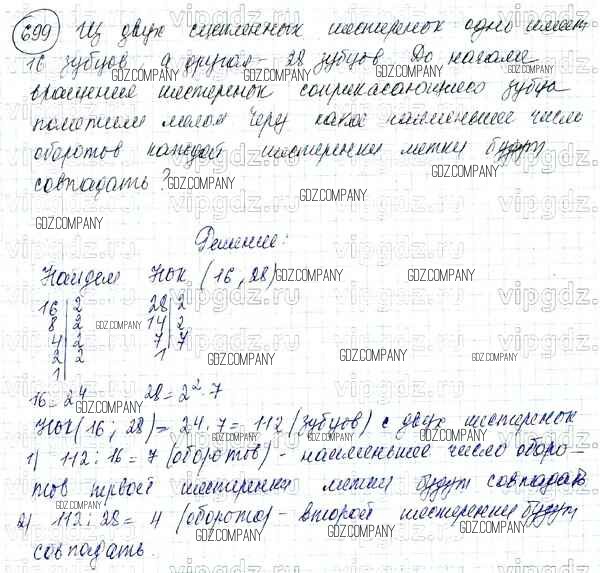 699 Из двух сцепленных шестеренок одна имеет
16 зубцов, а другая - 28 зубцов. До начала
вращения шестеренок соприкасающиеся зубца
пометили мелом Через какое наименьшее число
оборотов каждой шестеренки метки будут
совпадать?
Решение:
Найдем НОК (16, 28)
16 | 2 28 | 2
8 | 2 14 | 2
4 | 2 7 | 7
2 | 2 1
1
16 = 2⁴ 28 = 2² · 7
НОК (16; 28) = 24 · 7 = 112 (зубцов) с двух шестеренок
1) 112 : 16 = 7 (оборотов) - наименьшее число оборо-
тов первой шестеренки метки будут совпадать
2) 112 : 28 = 4 (оборота) - второй шестеренки будут
совпадать.
GDZ.COMPANY
vipgdz.ru